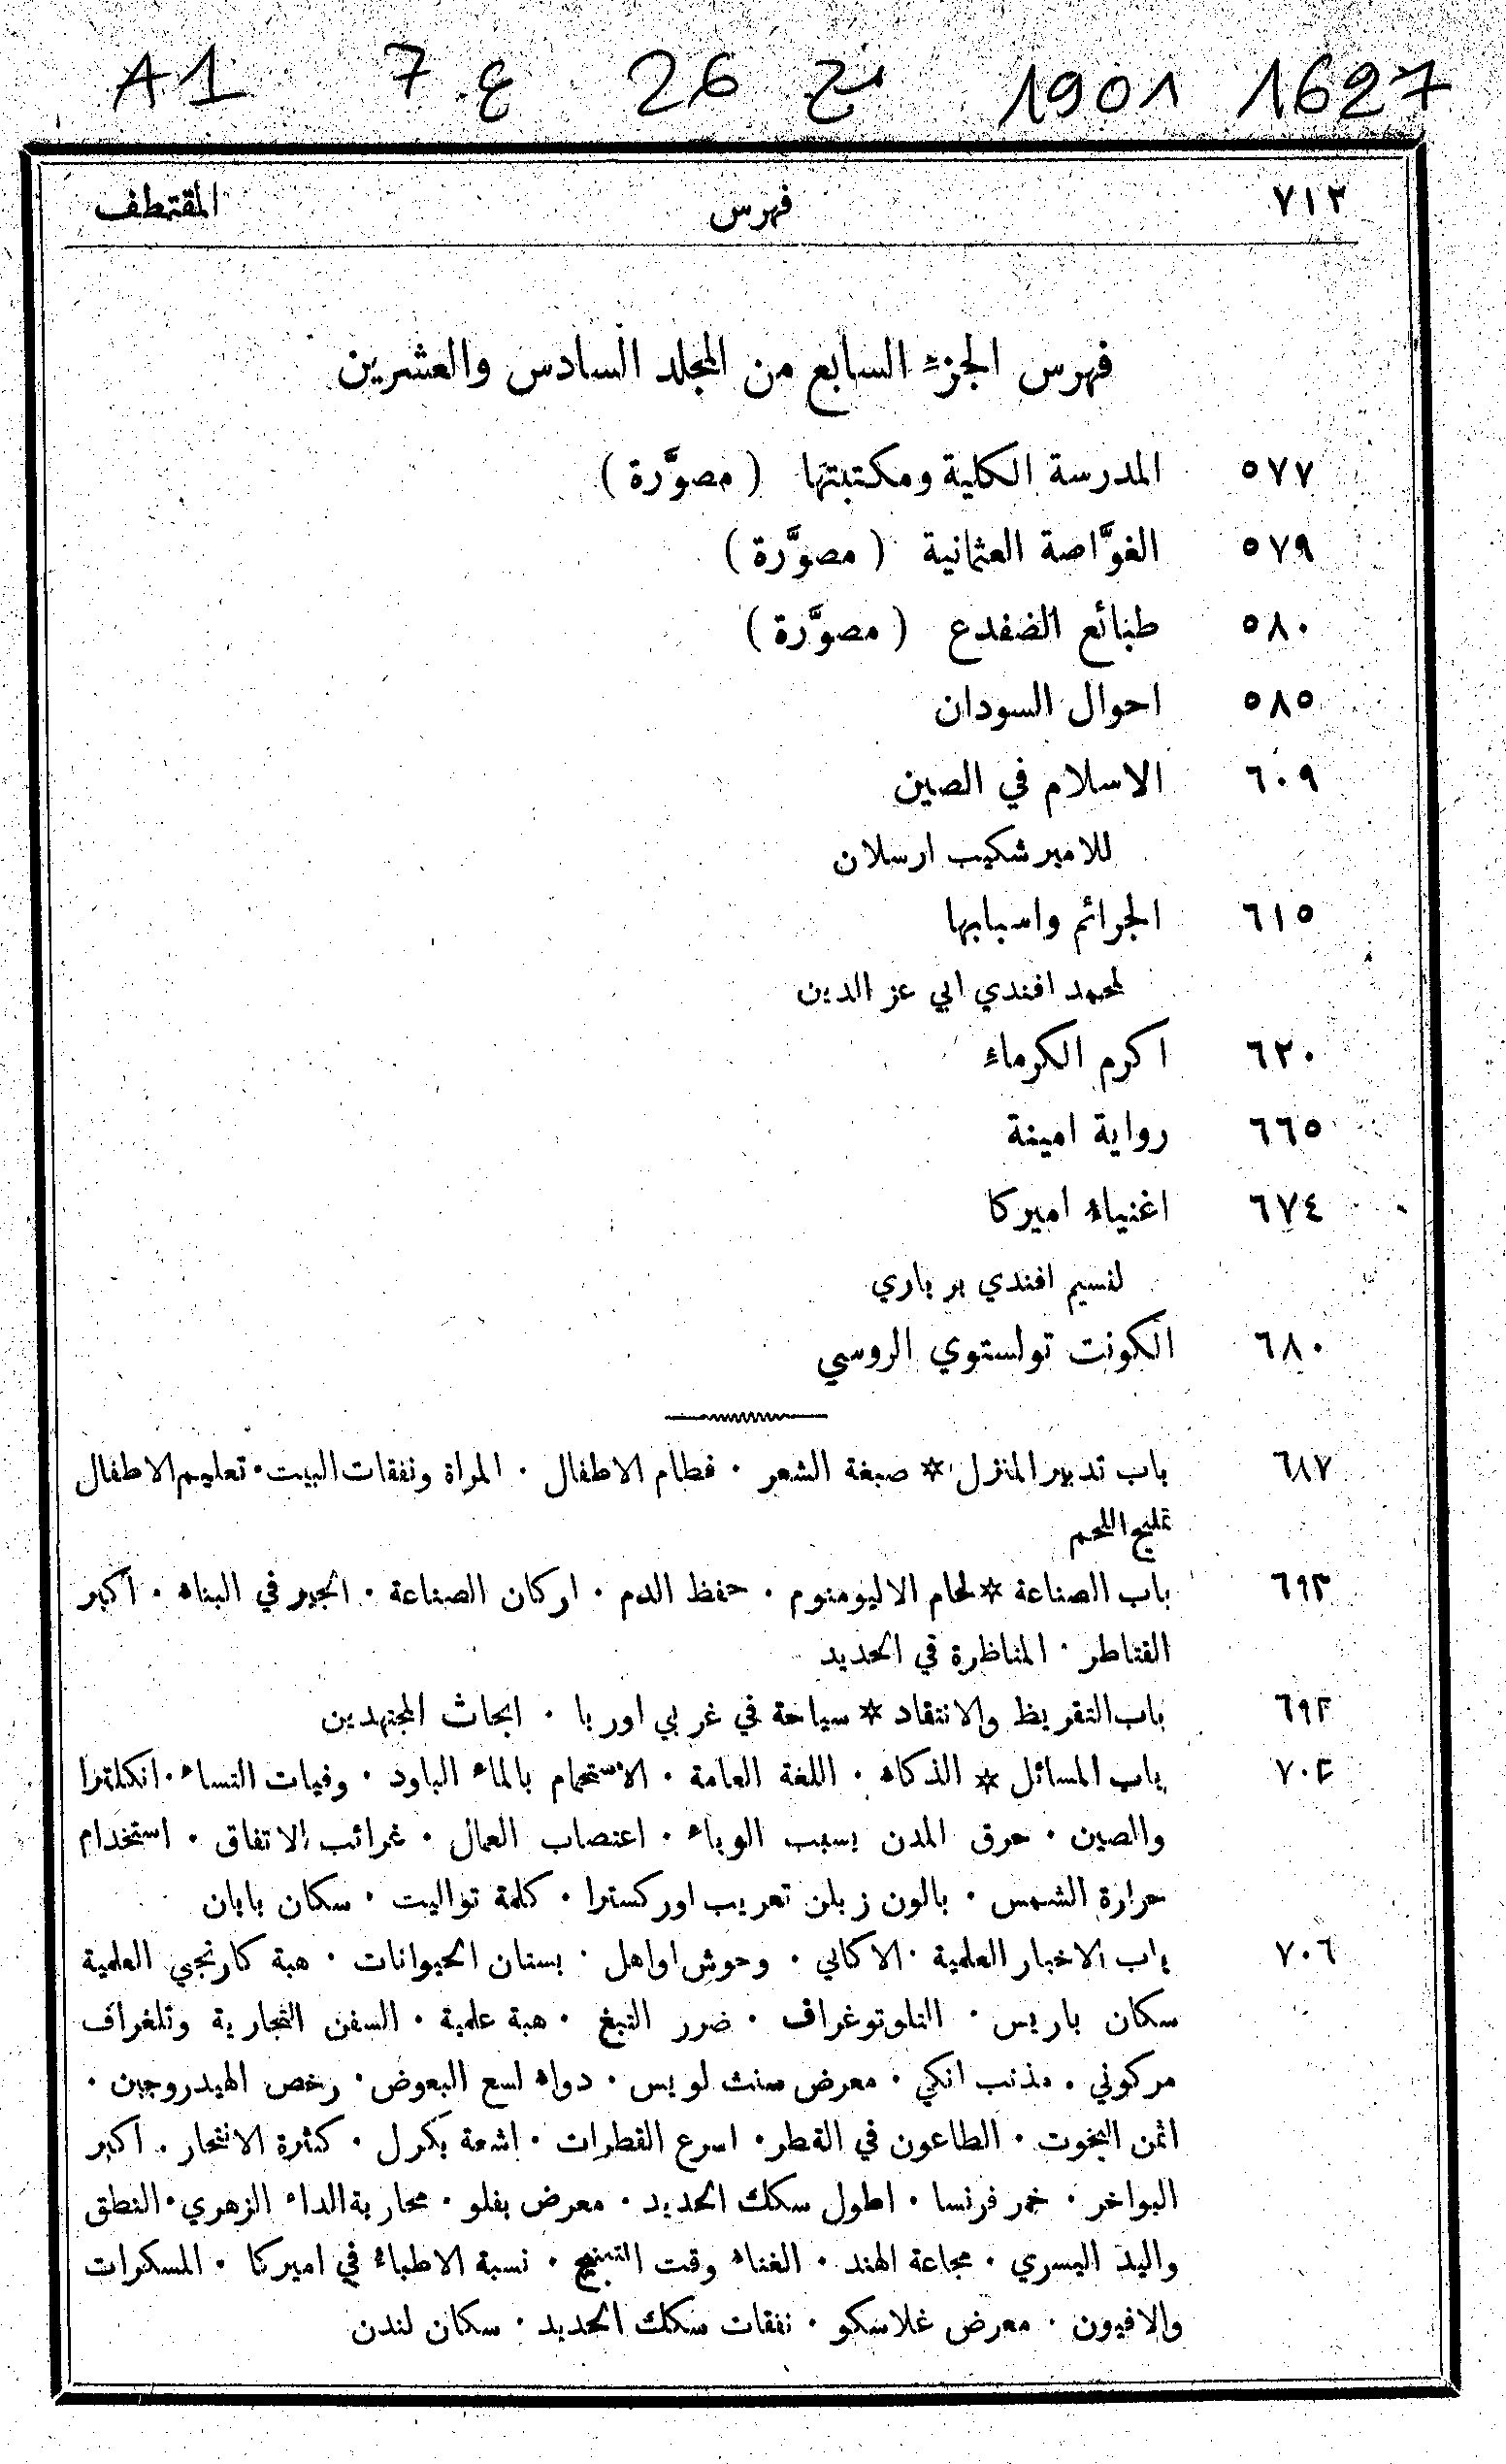 1627 1901 مج 26 ع. 7 A1
٧١٢ فهرس المقتطف
فهرس الجزء السابع من المجلد السادس والعشرين
٥٧٧ المدرسة الكلية ومكتبتها ( مصوَّرة )
٥٧٩ الغوَّاصة العثمانية ( مصوَّرة )
٥٨٠ طبائع الضفدع ( مصوَّرة )
٥٨٥ احوال السودان
٦٠٩ الاسلام في الصين
للامير شكيب ارسلان
٦١٥ الجرائم واسبابها
لمحمد افندي ابي عز الدين
٦٢٠ اكرم الكرماء
٦٦٥ رواية امينة
٦٧٤ اغنياء اميركا
لنسيم افندي بر باري
٦٨٠ الكونت تولستوي الروسي
٦٨٧ باب تدبير المنزل * صبغة الشعر ٠ فطام الاطفال ٠ المراة ونفقات البيت ٠ تعليم الاطفال
تمليح اللحم
٦٩٣ باب الصناعة * لحام الاليومنوم ٠ حفظ الدم ٠ اركان الصناعة ٠ الجير في البناء ٠ اكبر
القناطر ٠ المناظرة في الحديد
باب التقريظ والانتقاد * سياحة في غربي اوربا ٠ ابحاث المجتهدين
باب المسائل * الذكاء ٠ اللغة العامة ٠ الاستحمام بالماء البارد ٠ وفيات النساء ٠ انكلترا
والصين ٠ حرق المدن بسبب الوباء ٠ اعتصاب العمال ٠ غرائب الاتفاق ٠ استخدام
حرارة الشمس ٠ بالون زبلن تعريب اوركسترا ٠ كلمة تواليت ٠ سكان يابان
٧٠٦ باب الاخبار العلمية ٠ الاكابي ٠ وحوش اواهل ٠ بستان الحيوانات ٠ هبة كارنجي العلمية
سكان باريس ٠ التلوتوغراف ٠ ضرر التبغ ٠ هبة علمية ٠ السفن التجارية وتلغراف
مركوني ٠ مذنب انكي ٠ معرض سنت لويس ٠ دواء لسع البعوض ٠ رخص الهيدروجين ٠
اثمن اليخوت ٠ الطاعون في القطر ٠ اسرع القطرات ٠ اشعة بكرل ٠ كثرة الانتحار ٠ اكبر
البواخر ٠ خمر فرنسا ٠ اطول سكك الحديد ٠ معرض بفلو ٠ محاربة الداء الزهري ٠ النطق
واليد اليسرى ٠ مجاعة الهند ٠ الغناء وقت التبنيج ٠ نسبة الاطباء في اميركا ٠ المسكرات
والافيون ٠ معرض غلاسكو ٠ نفقات سكك الحديد ٠ سكان لندن